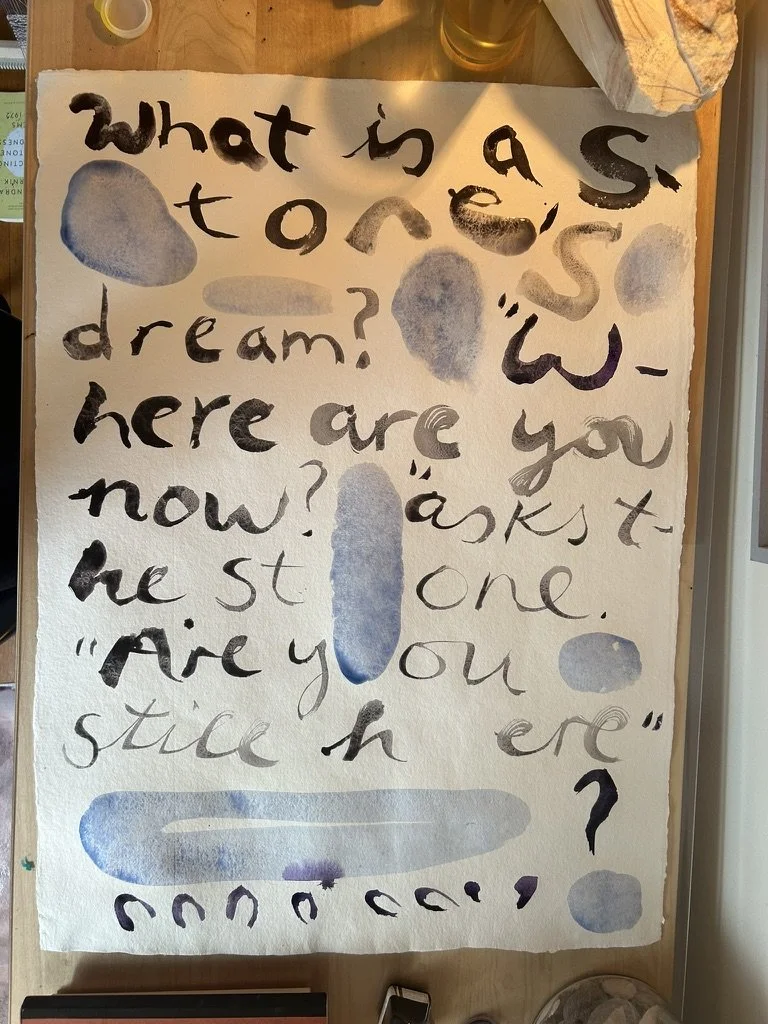 What is a S-
tone's
dream? "W-
here are you
now? "asks t-
he st one.
"Are you
still h ere"
?